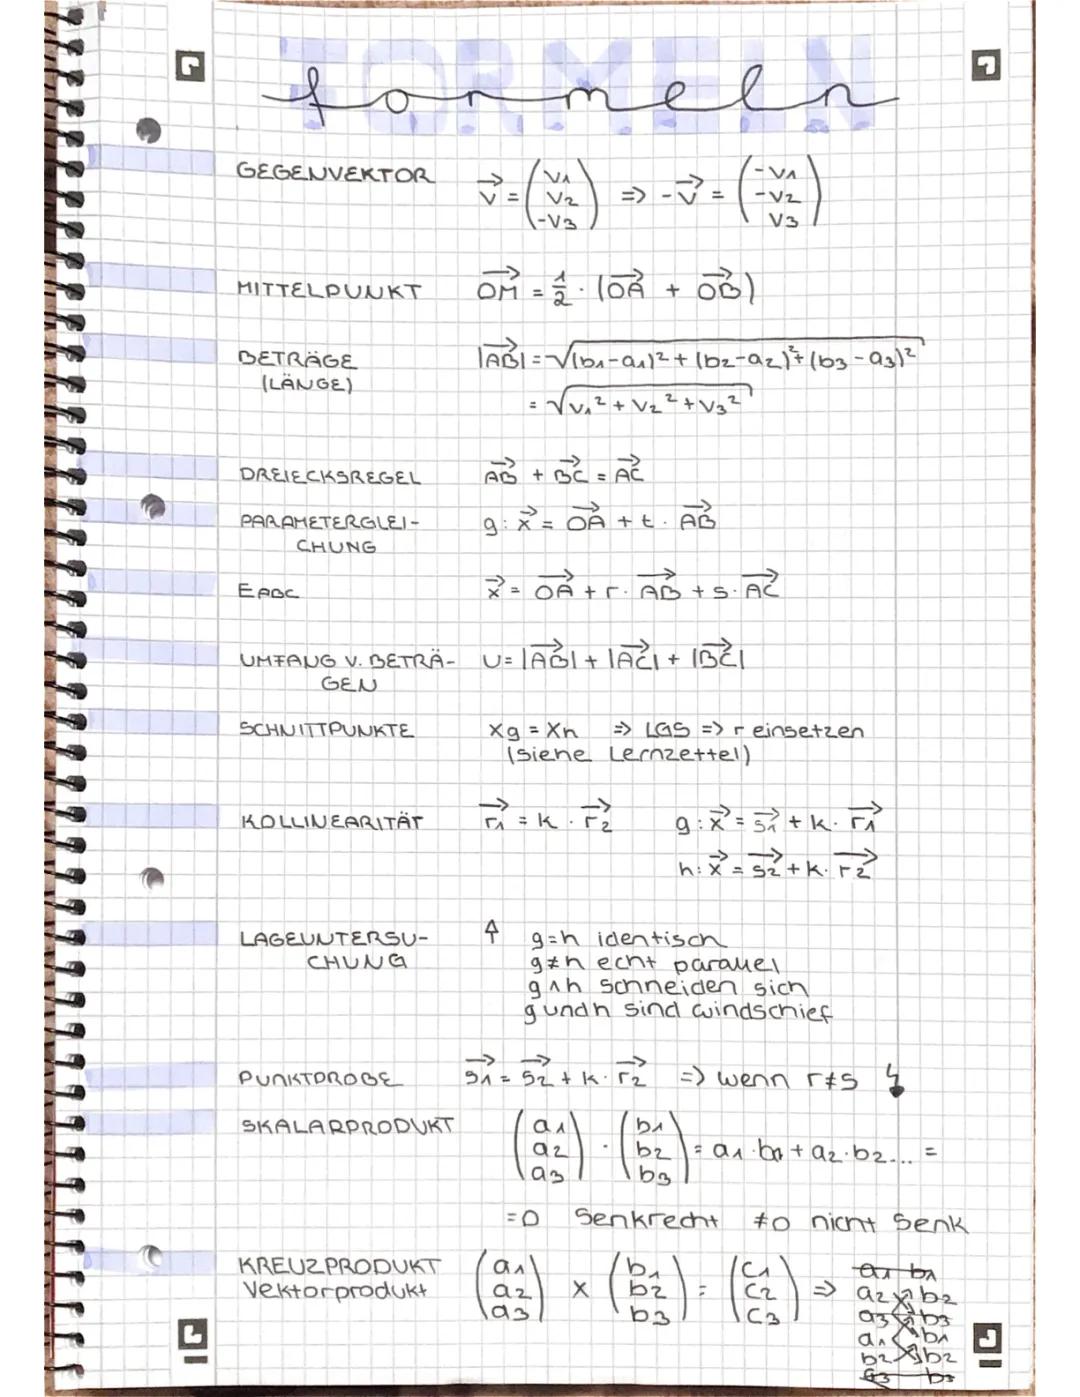 FORMELN
formeln
GEGENVEKTOR v⃗ = (v1 v2 -v3) => -v⃗ = (-v1 -v2 v3)
MITTELPUNKT OM⃗ = 1/2 · (OA⃗ + OB⃗)
BETRÄGE |AB⃗| = √(b1-a1)² + (b2-a2)² + (b3-a3)²
(LÄNGE)
= √v1² + v2² + v3²
DREIECKSREGEL AB⃗ + BC⃗ = AC⃗
PARAMETERGLEI- g: x⃗ = OA⃗ + t · AB⃗
CHUNG
EABC x⃗ = OA⃗ + r · AB⃗ + s · AC⃗
UMFANG V. BETRÄ- U = |AB⃗| + |AC⃗| + |BC⃗|
GEN
SCHNITTPUNKTE xg = xh => LGS => r einsetzen
(siehe Lernzettel)
KOLLINEARITÄT r1⃗ = k · r2⃗ g: x⃗ = s1⃗ + k · r1⃗
h: x⃗ = s2⃗ + k · r2⃗
LAGEUNTERSU- ↑ g=h identisch
CHUNG g≠h echt parallel
g∧h schneiden sich
g und h sind windschief
PUNKTPROBE s1⃗ = s2⃗ + k · r2⃗ => wenn r≠s ↯
SKALARPRODUKT (a1 a2 a3) · (b1 b2 b3) = a1·b1 + a2·b2... =
=0 Senkrecht ≠0 nicht Senk
KREUZPRODUKT (a1 a2 a3) × (b1 b2 b3) = (c1 c2 c3) => a1 b1
Vektorprodukt a2 b2
a3 b3
a1 b1
b2 b2
a3 b3